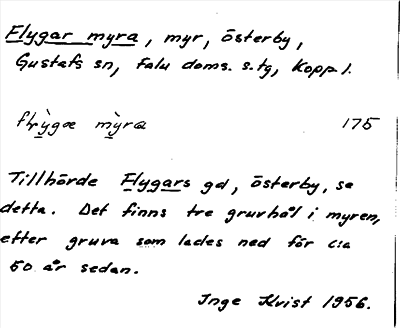 Flygar myra, myr, Österby,
Gustafs sn, Falu doms. s. tg, Kopp. l.
myra 175
Tillhörde Flygars gd, Österby, se
detta. Det finns tre gruvhål i myren,
efter gruva som lades ned för c:a
50 år sedan.
Inge Kvist 1956.